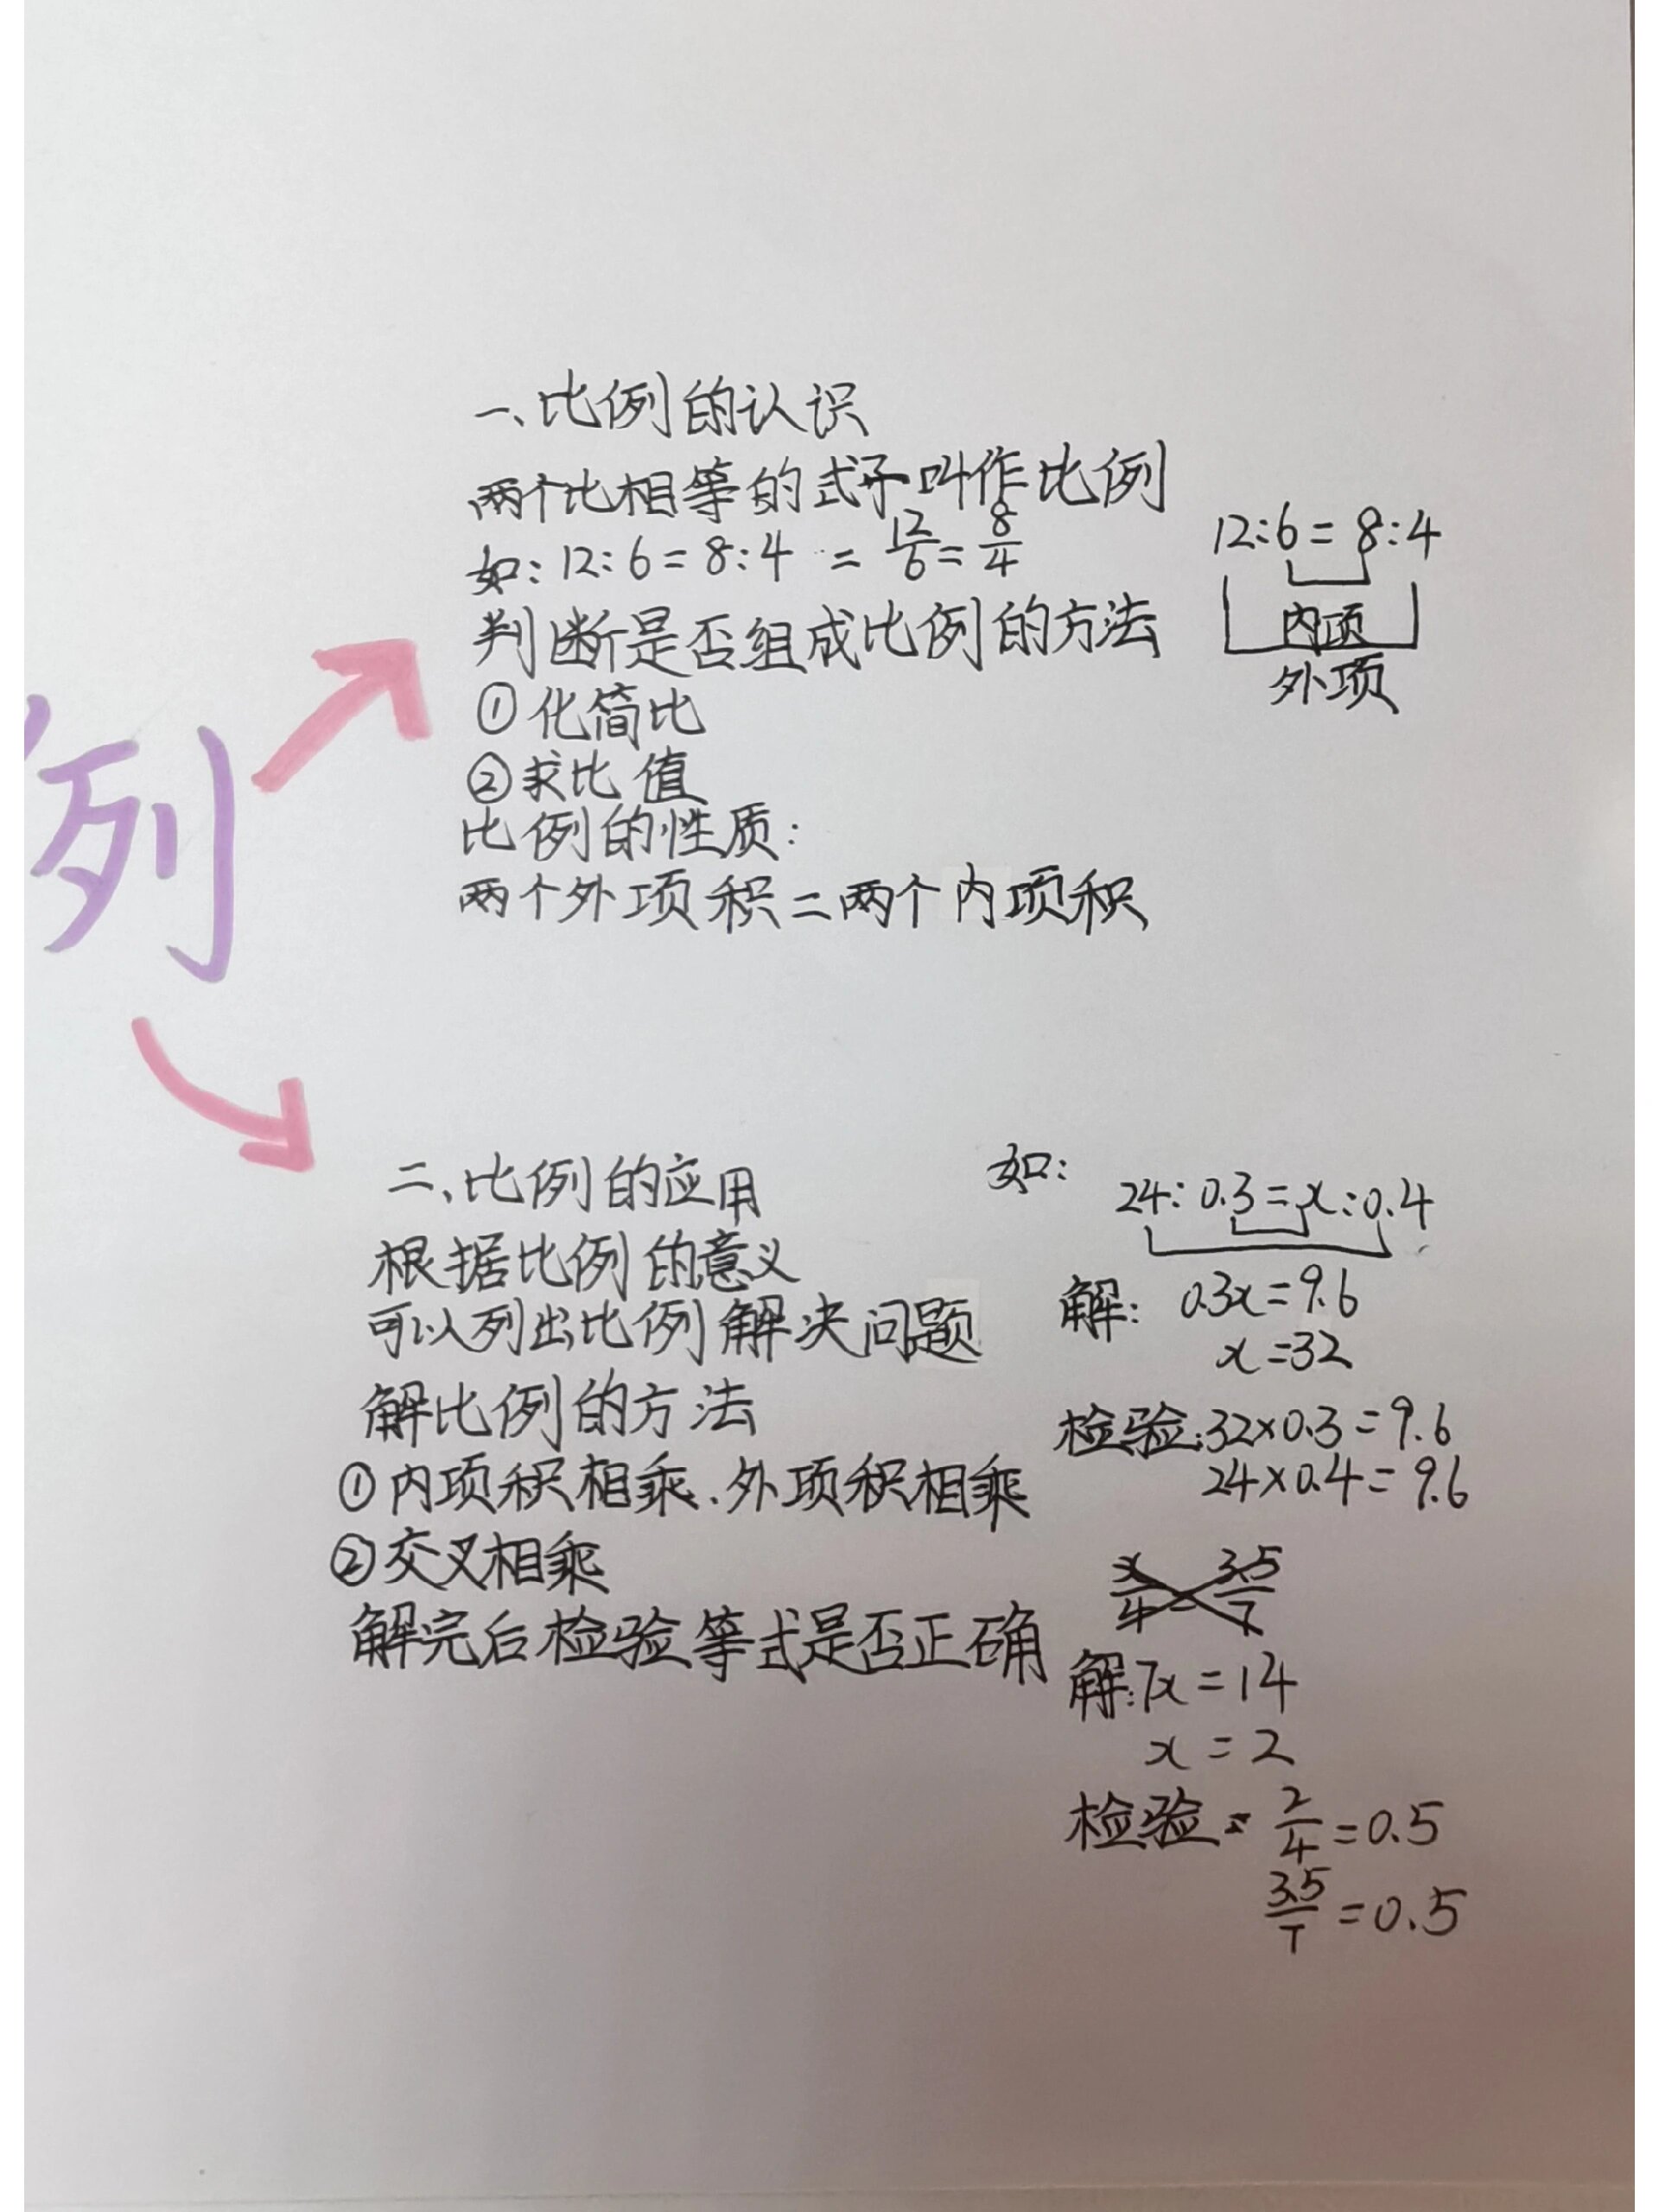 列
一、比例的认识
两个比相等的式子叫作比例
如:12:6=8:4 = 12/6=8/4
判断是否组成比例的方法
①化简比
②求比值
比例的性质:
两个外项积=两个内项积
12:6=8:4
内项
外项
二、比例的应用
根据比例的意义
可以列出比例解决问题
解比例的方法
①内项积相乘.外项积相乘
②交叉相乘
解完后检验等式是否正确
如:
24:0.3=x:0.4
解: 0.3x=9.6
x=32
检验:32×0.3=9.6
24×0.4=9.6
x/4=3.5/7
解:7x=14
x=2
检验: 2/4=0.5
3.5/7=0.5